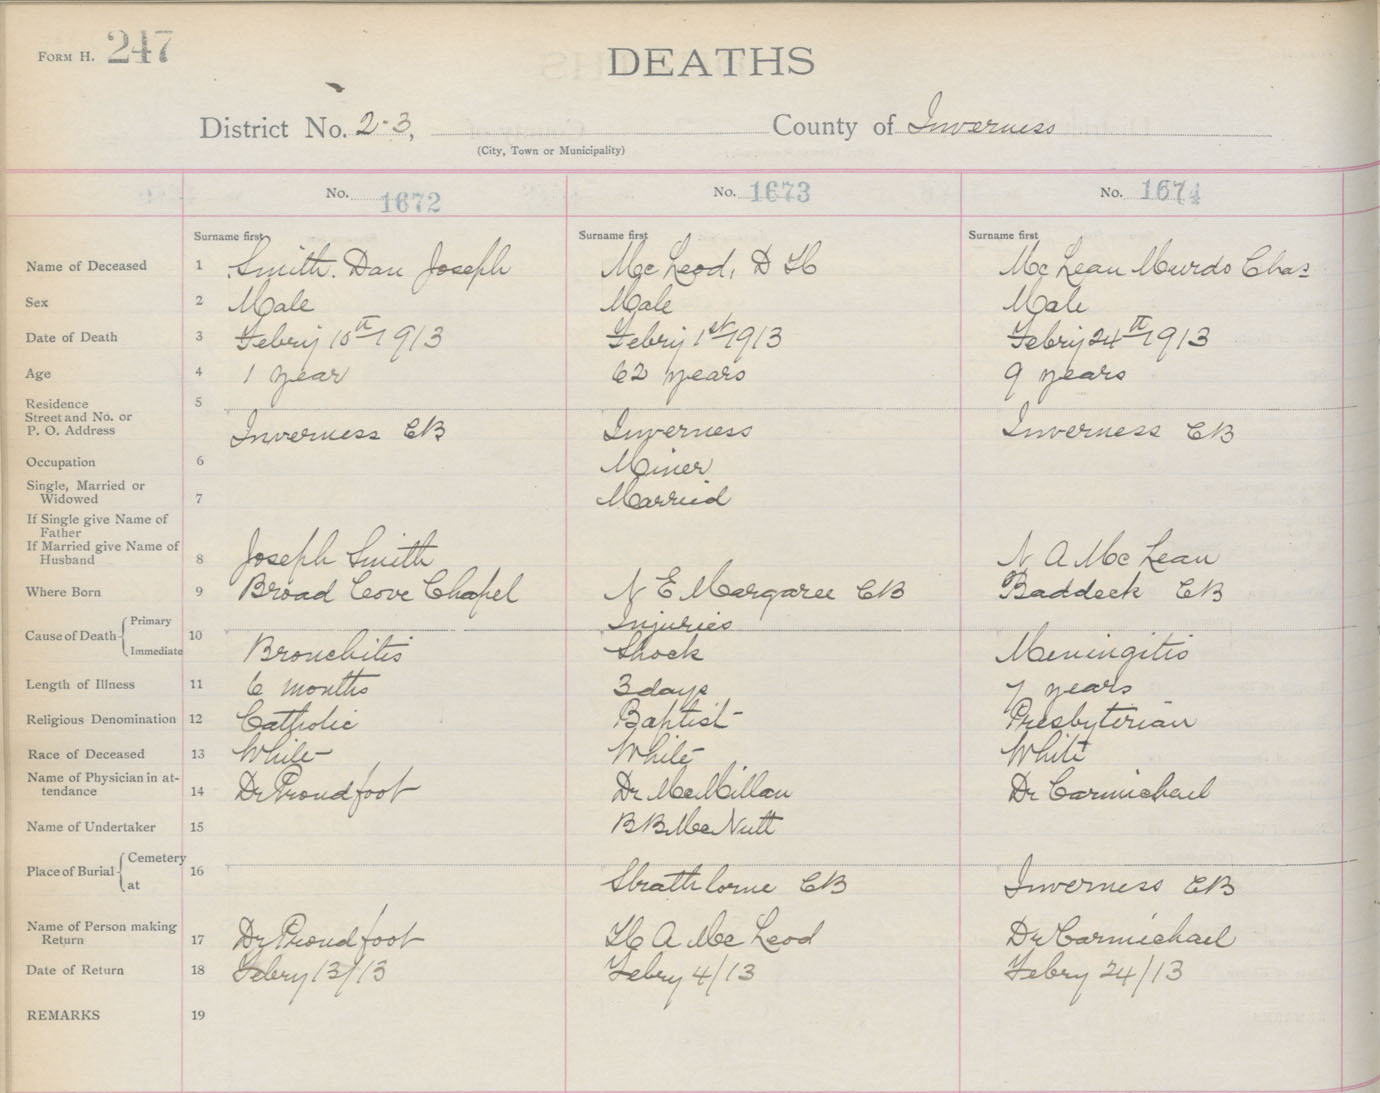 FORM H. 247
DEATHS
District No. 2-3, County of Inverness
(City, Town or Municipality)
No. 1672 No. 1673 No. 1674
Surname first Surname first Surname first
Name of Deceased 1 Smith. Dan Joseph Mc Leod, D H Mc Lean Murdo Chas
Sex 2 Male Male Male
Date of Death 3 Febry 10th 1913 Febry 1st 1913 Febry 24th 1913
Age 4 1 year 62 years 9 years
Residence 5
Street and No. or
P. O. Address Inverness CB Inverness Inverness CB
Occupation 6 Miner
Single, Married or
Widowed 7 Married
If Single give Name of
Father
If Married give Name of
Husband 8 Joseph Smith N A Mc Lean
Where Born 9 Broad Cove Chapel N E Margaree CB Baddeck CB
Cause of Death Primary 10 Injuries
Immediate Bronchitis Shock Meningitis
Length of Illness 11 6 months 3 days 7 years
Religious Denomination 12 Catholic Baptist Presbyterian
Race of Deceased 13 White White White
Name of Physician in at-
tendance 14 Dr Proudfoot Dr MacMillan Dr Carmichael
Name of Undertaker 15 B B MacNutt
Place of Burial Cemetery 16
at Strathlorne CB Inverness CB
Name of Person making
Return 17 Dr Proudfoot H A Mc Leod Dr Carmichael
Date of Return 18 Febry 13/13 Febry 4/13 Febry 24/13
REMARKS 19